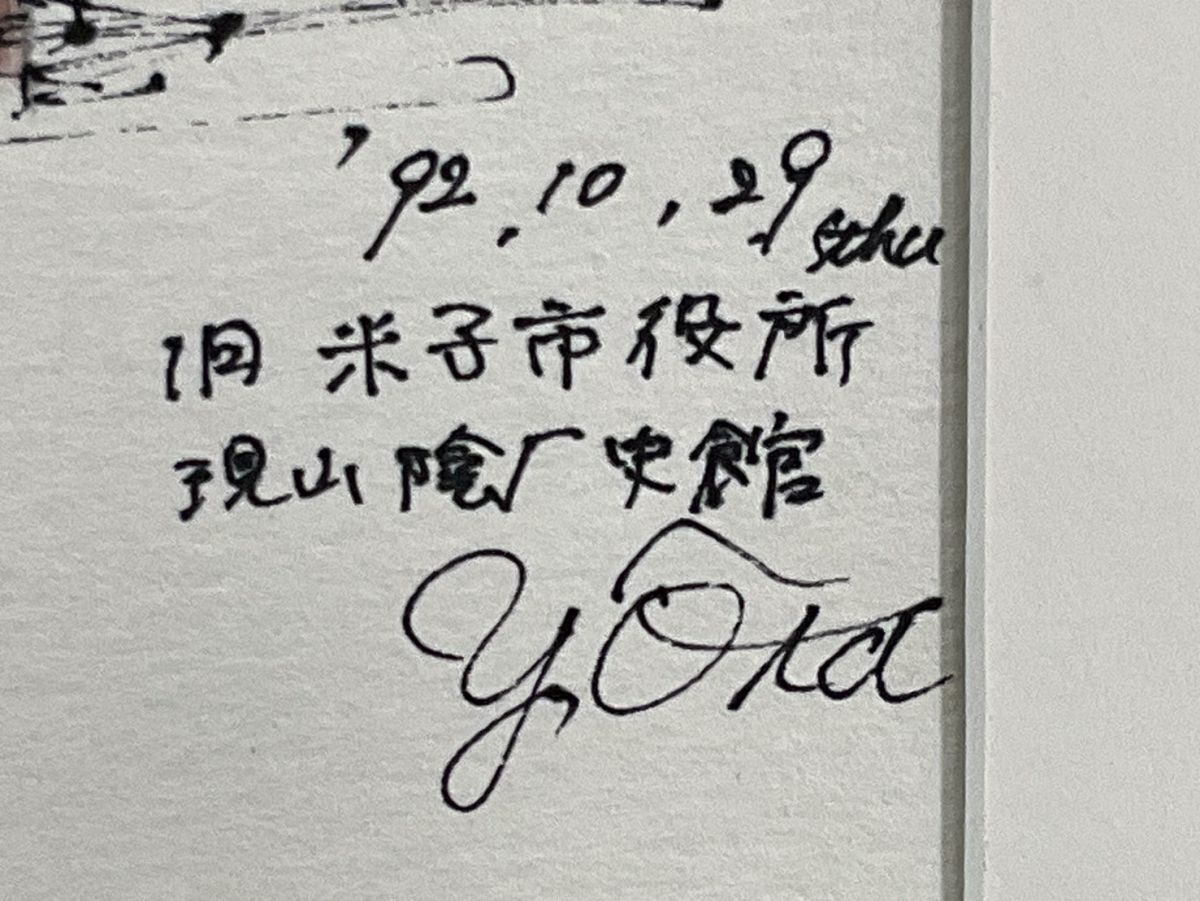 '92.10.29 sthu
旧米子市役所
現山陰厂史館
Y. Ôta